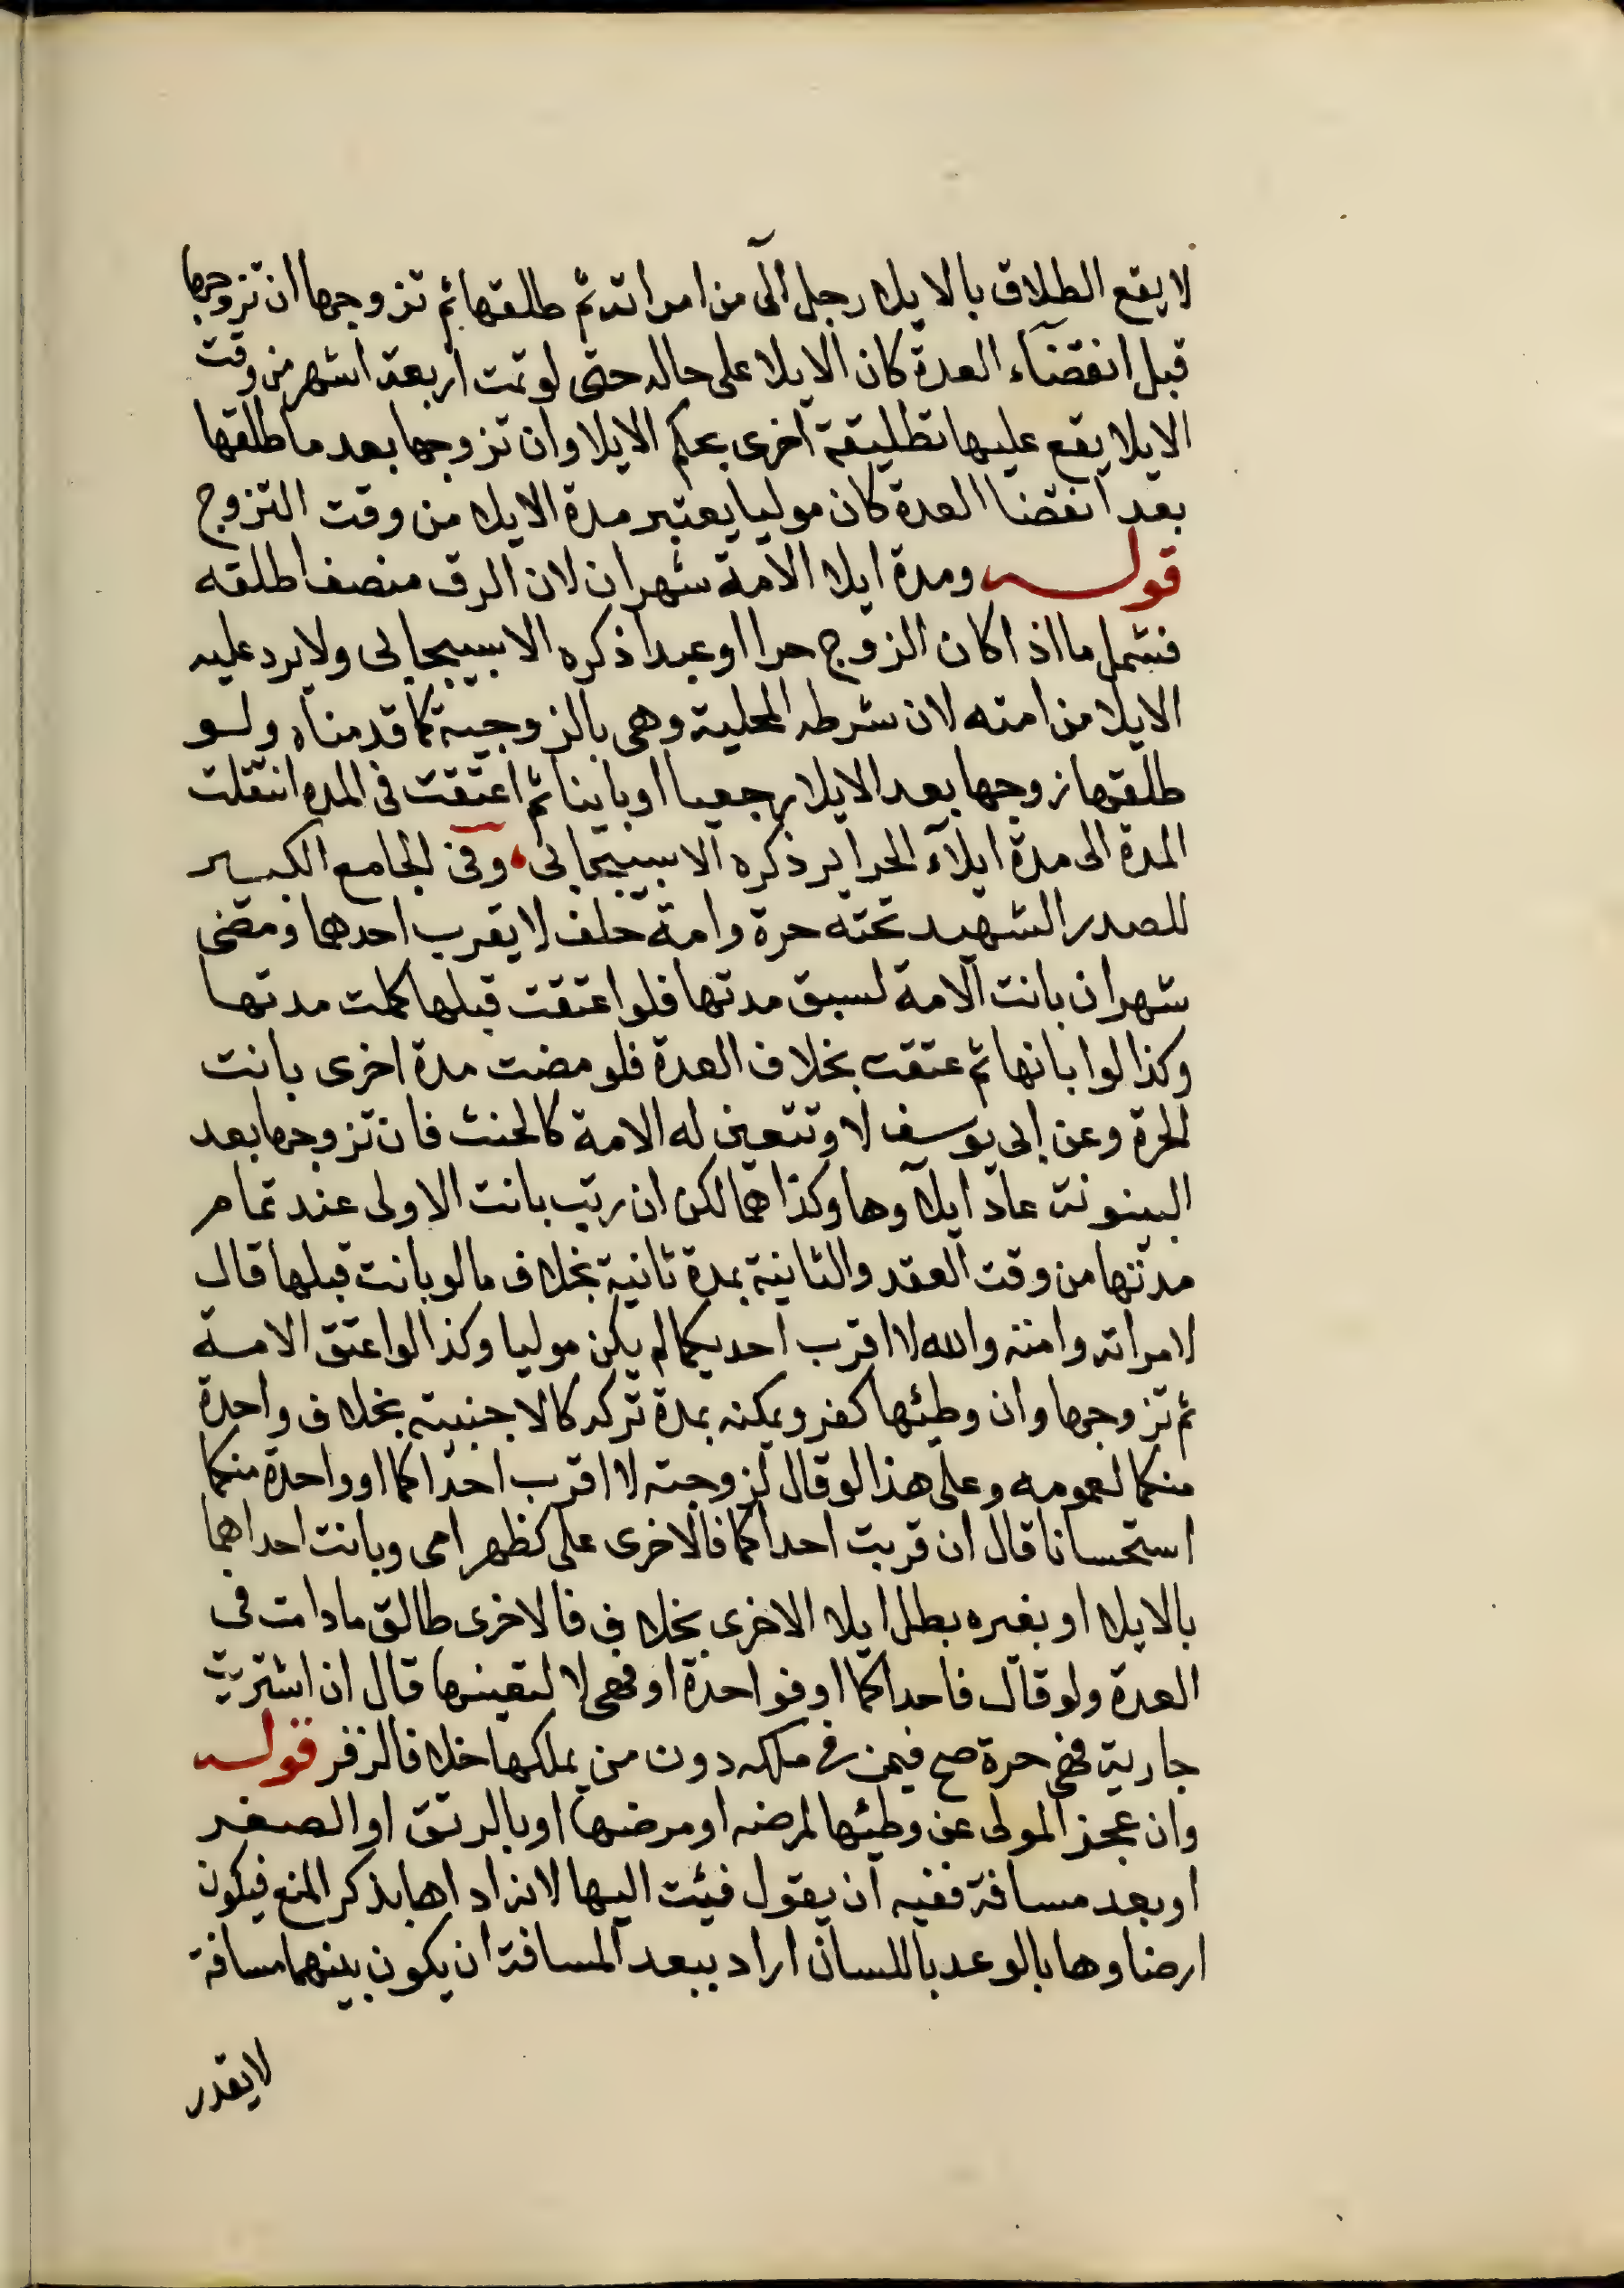 لا يقع الطلاق بالايلا رجل آلى من امراته ثم طلقها ثم تزوجها ان تزوجها
قبل انقضآء العدة كان الايلا على حاله حتى لو تمت اربعة اشهر من وقت
الايلا يقع عليها تطليقة اخرى بحكم الايلا وان تزوجها بعد ما طلقها
بعد انقضا العدة كان موليا يعتبر مدة الايلا من وقت التزوج
قوله ومدة ايلا الامة شهران لان الرق منصف اطلقه
فشمل ما اذا كان الزوج حرا او عبدا ذكره الاسبيجابى ولا يرد عليه
الايلا من امته لان شرطه المحلية وهى بالزوجية كما قدمناه ولو
طلقها زوجها بعد الايلا رجعيا او باينا ثم اعتقت فى المدة انتقلت
المدة الى مدة ايلآء الحراير ذكره الاسبيجابى، وفى الجامع الكبير
للصدر الشهيد تحته حرة وامة حلف لا يقرب احدهما ومضى
شهران بانت الامة لسبق مدتها فلو اعتقت قبلها كملت مدتها
وكذا لو ابانها ثم عتقت بخلاف العدة فلو مضت مدة اخرى بانت
الحرة وعن ابى يوسف لا وتتعين له الامة كالحنث فان تزوجها بعد
البينونة عاد ايلآوها وكذا هما لكن ان رتب بانت الاولى عند تمام
مدتها من وقت العقد والثانية بمدة ثانية بخلاف ما لو بانت قبلها قال
لامراته وامته والله لا اقرب احديكما لم يكن موليا وكذا لو اعتق الامة
ثم تزوجها وان وطئها كفر ويمكنه بمدة تركه كالاجنبية بخلاف واحدة
منكما لعمومه وعلى هذا لو قال لزوجته لا اقرب احداكما او واحدة منكما
استحسانا قال ان قربت احداكما فالاخرى على كظهر امى وبانت احداهما
بالايلا او بغيره بطل ايلا الاخرى بخلاف فالاخرى طالق ما دامت فى
العدة ولو قال فاحداكما او فواحدة او فهى لا لتعينها قال ان اشتريت
جارية فهى حرة صح فيمن فى ملكه دون من يملكها خلافا لزفر قوله
وان عجز المولى عن وطئها لمرضه او مرضها او بالرتق او الصغر
او بعد مسافة ففيه ان يقول فيئت اليها لانه اذاها بذكر المنع فيكون
ارضاوها بالوعد باللسان اراد ببعد المسافة ان يكون بينهما مسافة
لا يقدر